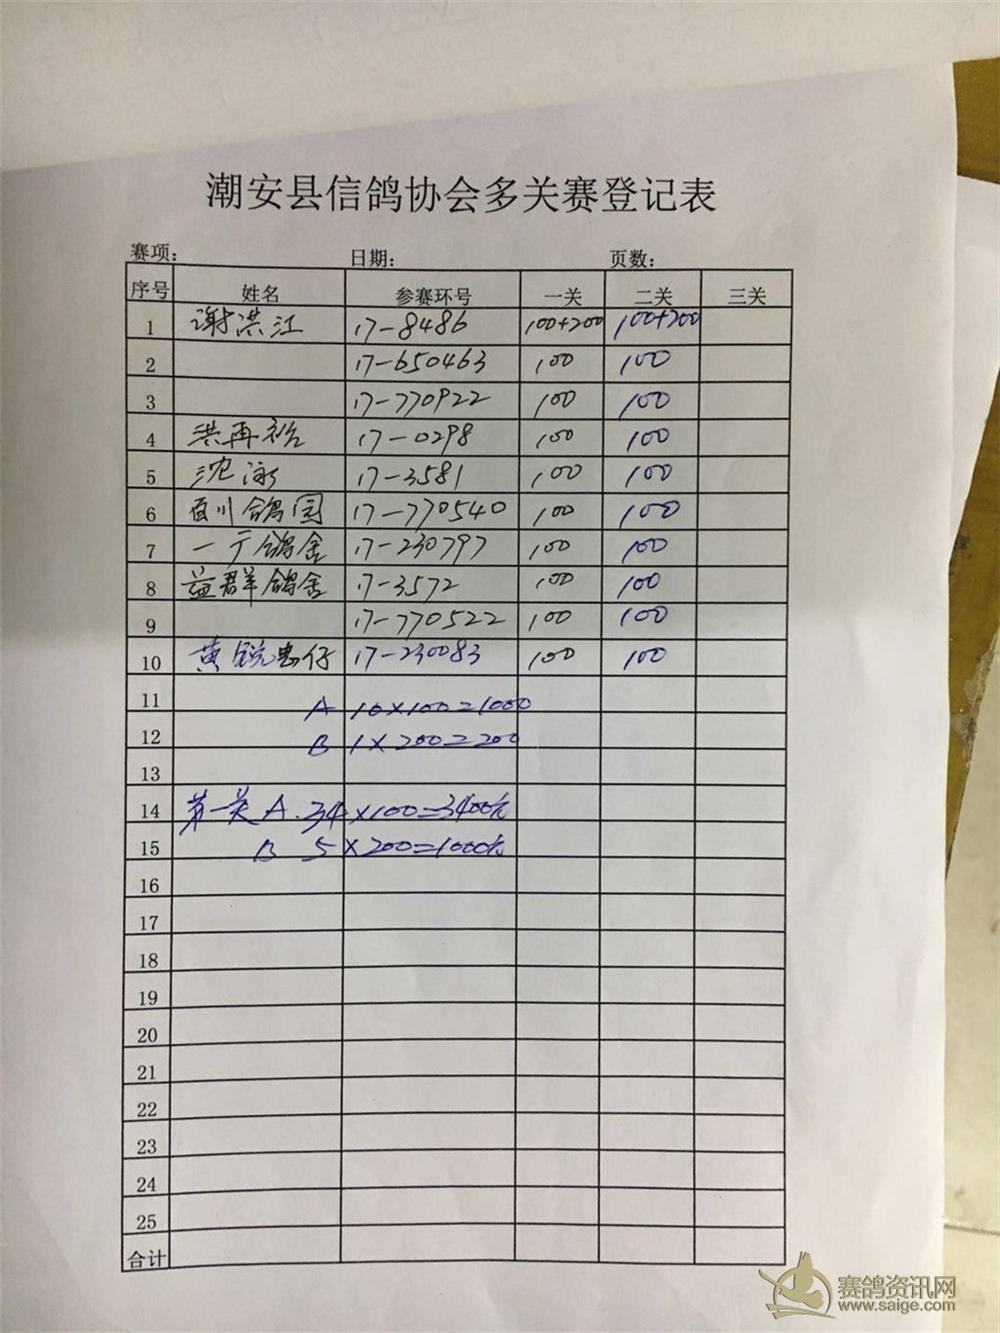 潮安县信鸽协会多关赛登记表
赛项: 日期: 页数:
序号 姓名 参赛环号 一关 二关 三关
1 谢洪江 17-8486 100+200 100+200
2 17-650463 100 100
3 17-770922 100 100
4 洪再裕 17-0298 100 100
5 沈泳 17-3581 100 100
6 百川鸽园 17-770540 100 100
7 一亍鸽舍 17-230797 100 100
8 益群鸽舍 17-3572 100 100
9 17-770522 100 100
10 黄锐忠仔 17-230083 100 100
11 A 10×100=1000
12 B 1×200=200
13
14 第一关A.34×100=3400元
15 B 5×200=1000元
16
17
18
19
20
21
22
23
24
25
合计
赛鸽资讯网
www.saige.com